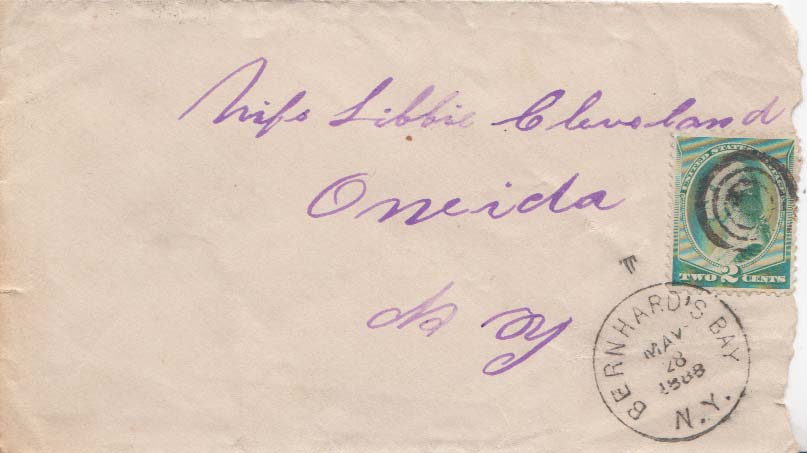 Miss Libbie Cleveland
Oneida
N Y
UNITED STATES
TWO 2 CENTS
BERNHARD'S BAY
MAY
28
1888
N.Y.